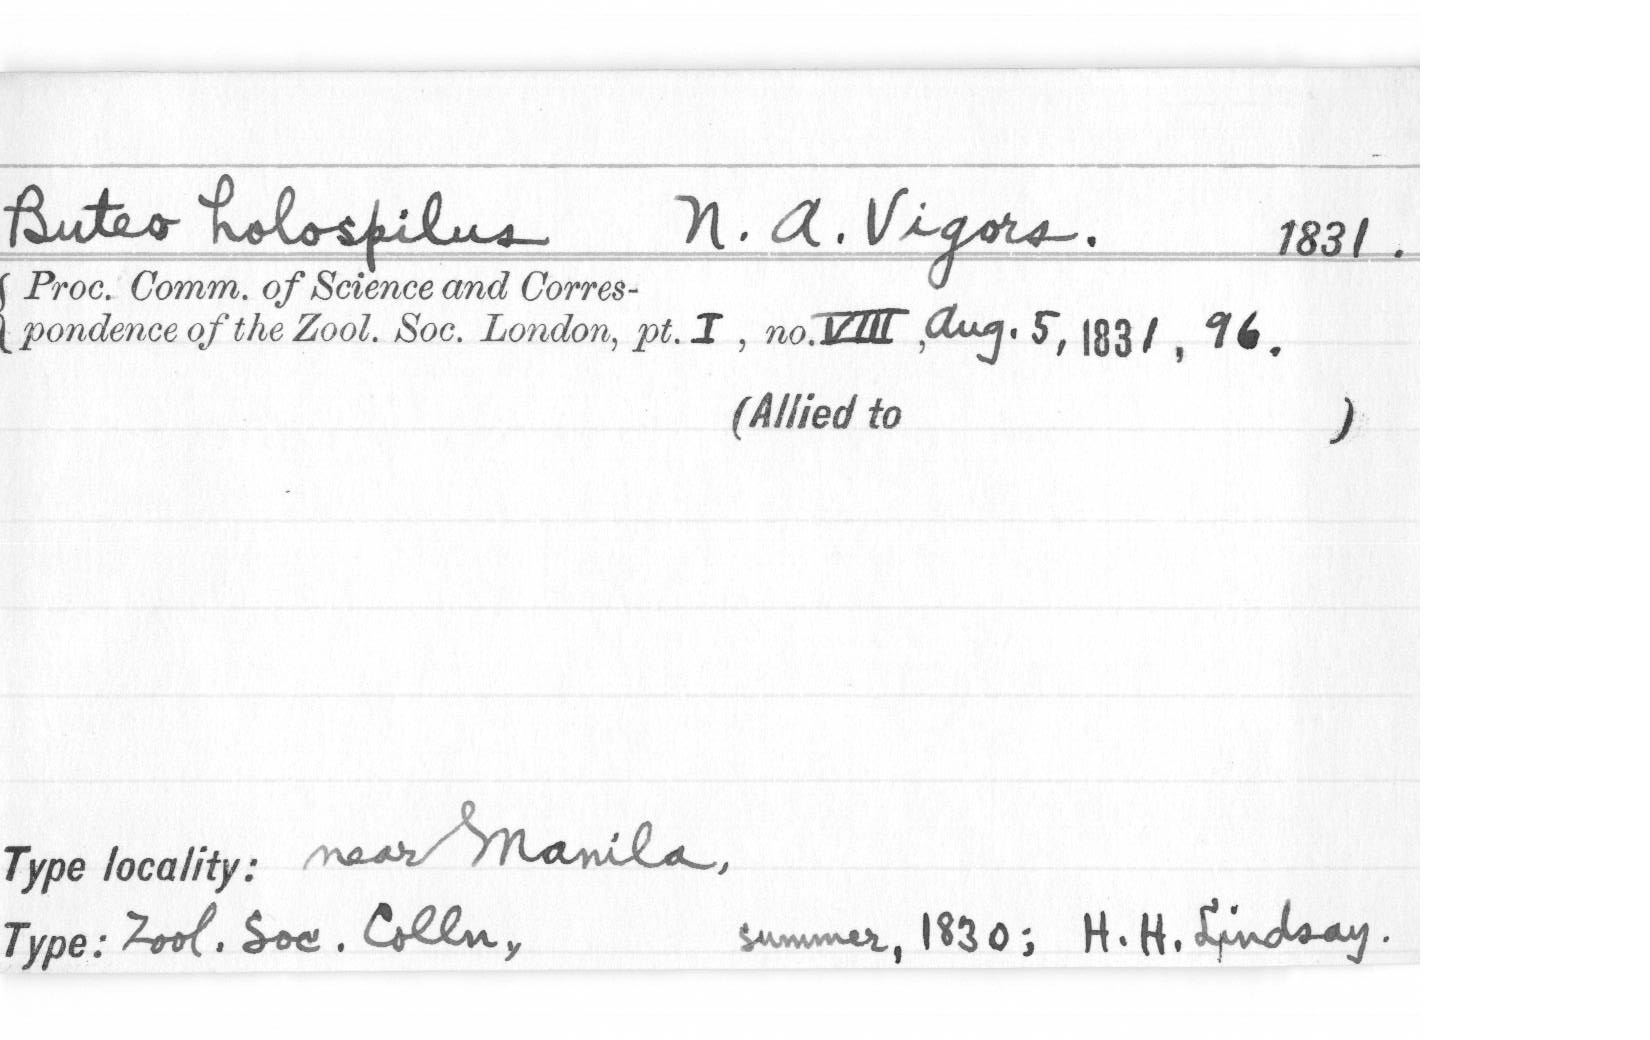 Buteo holospilus N. A. Vigors. 1831.
Proc. Comm. of Science and Corres-
pondence of the Zool. Soc. London, pt. I, no. VIII, Aug. 5, 1831, 96.
(Allied to )
Type locality: near Manila,
Type: Zool. Soc. Colln, summer, 1830; H. H. Lindsay.